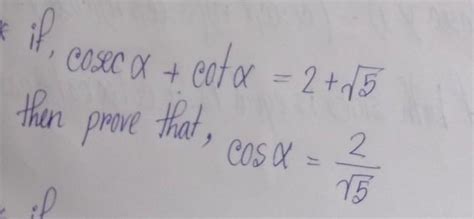 * if, cosec α + cot α = 2 + √5
then prove that, cos α = 2/√5
if